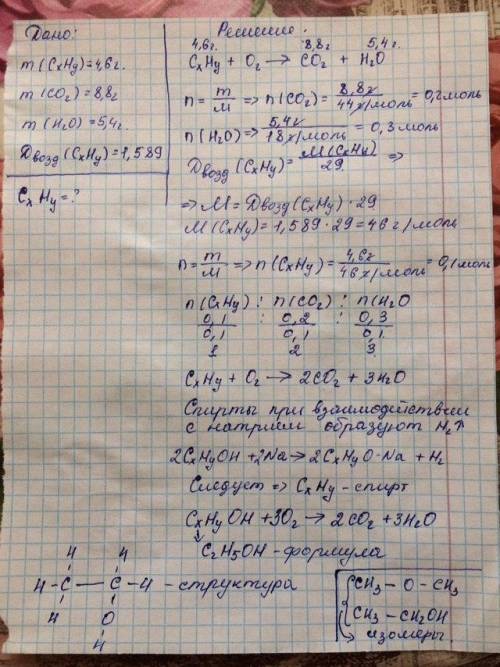 Дано:
m(CxHy)=4,6г.
m(CO2)=8,8г
m(H2O)=5,4г.
Двозд(CxHy)=1,589
CxHy=?
Решение.
4,6г. 8,8г 5,4г.
CxHy + O2 → CO2 + H2O
n=m/M => n(CO2)=8,8г/44г/моль=0,2моль
n(H2O)=>5,4г/18г/моль=0,3моль
Двозд(CxHy)=M(CxHy)/29 =>
=> M=Двозд(CxHy)·29
M(CxHy)=1,589·29=46г/моль
n=m/M => n(CxHy)=4,6г/46г/моль=0,1моль
n(CxHy) : n(CO2) : n(H2O
0,1/0,1 : 0,2/0,1 : 0,3/0,1
1 2 3
CxHy + O2 → 2CO2 + 3H2O
Спирты при взаимодействии
с натрием образуют H2↑
2CxHyOH +2Na→2CxHyO-Na + H2
Следует => CxHy - спирт
CxHyOH +3O2→2CO2+3H2O
↓
C2H5OH-формула
H H
H - C - C - H - структура
H O
H
CH3 - O - CH3
CH3 - CH2OH
→ изомеры.